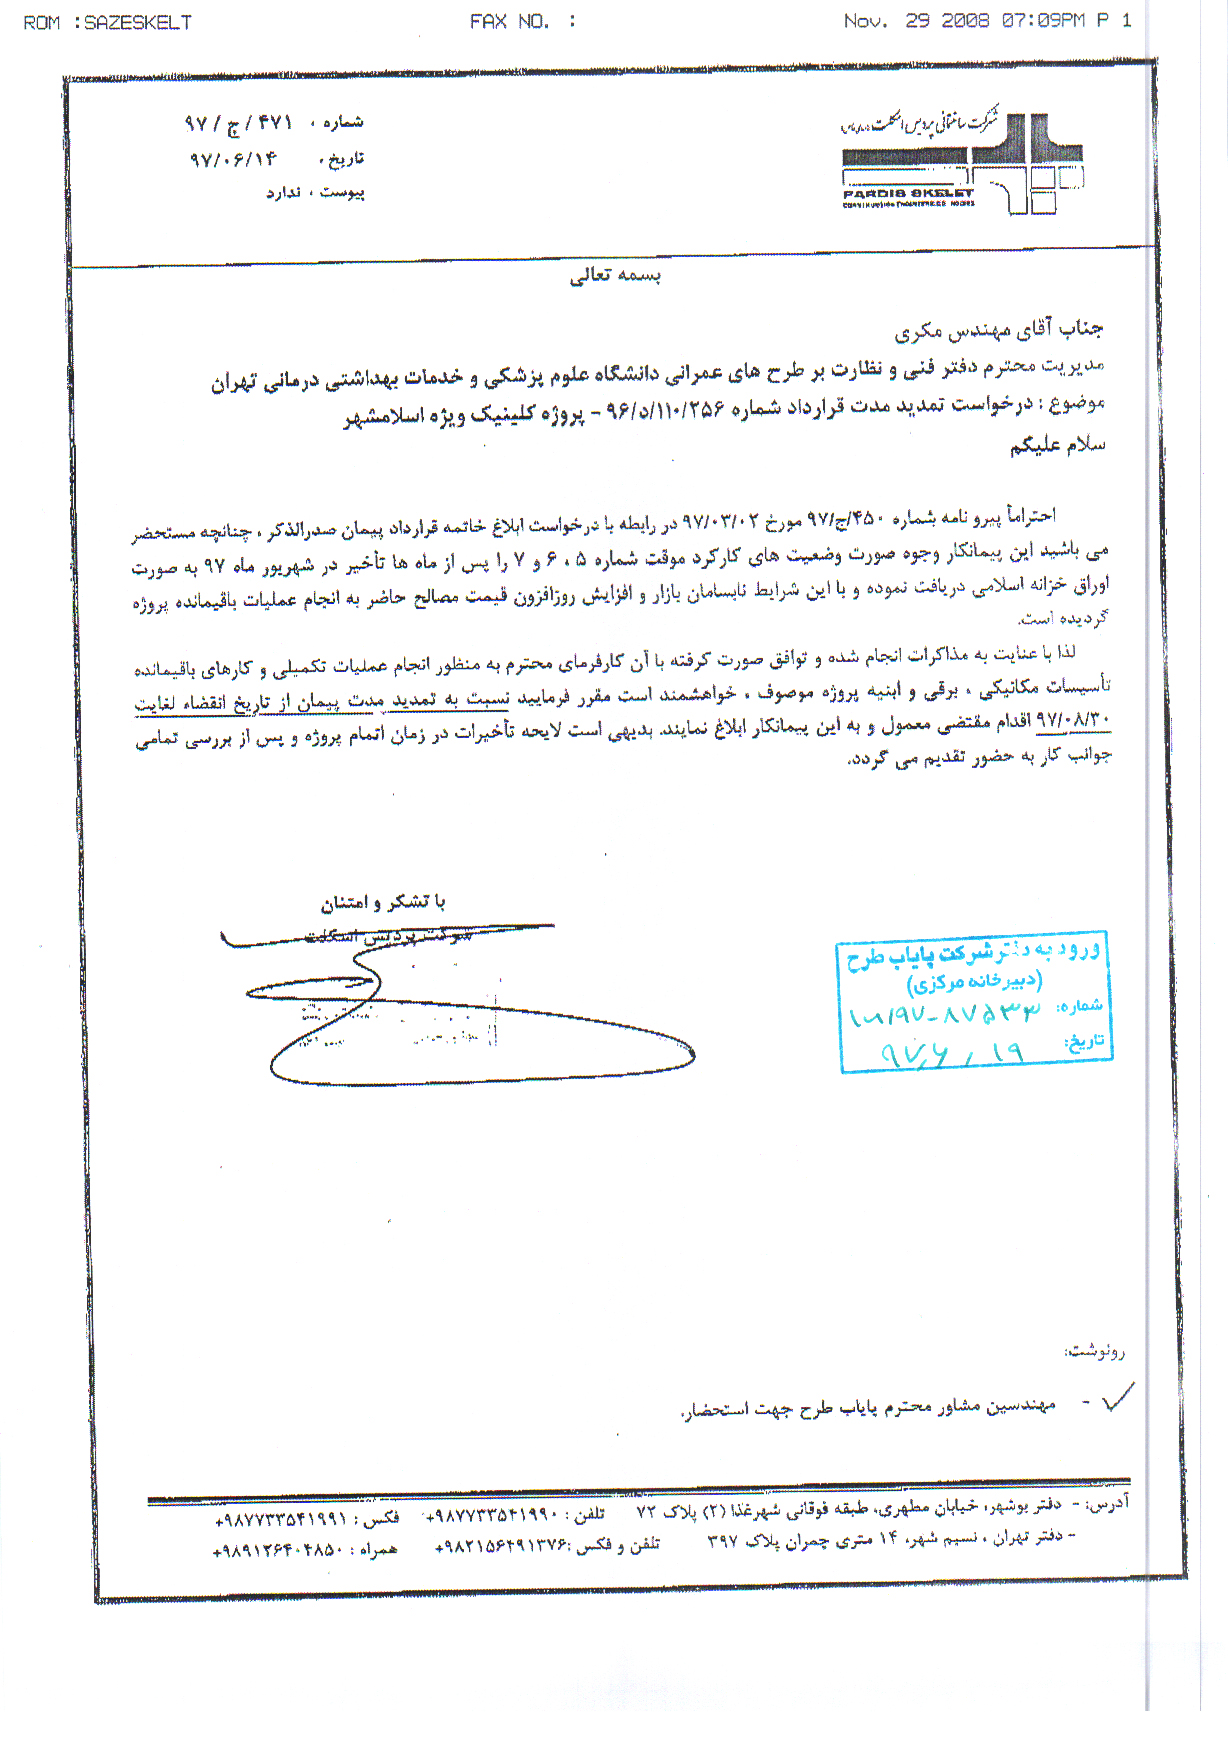 ROM :SAZESKELT FAX NO. : Nov. 29 2008 07:09PM P 1
شرکت ساختمانی پردیس اسکلت
PARDIS SKELET
شماره : ۴۷۱/ج/۹۷
تاریخ : ۹۷/۰۶/۱۴
پیوست : ندارد
بسمه تعالی
جناب آقای مهندس مکری
مدیریت محترم دفتر فنی و نظارت بر طرح های عمرانی دانشگاه علوم پزشکی و خدمات بهداشتی درمانی تهران
موضوع : درخواست تمدید مدت قرارداد شماره ۹۶/د/۱۱۰/۲۵۶ - پروژه کلینیک ویژه اسلامشهر
سلام علیکم
احتراماً پیرو نامه شماره ۹۷/ج/۴۵۰ مورخ ۹۷/۰۳/۰۲ در رابطه با درخواست ابلاغ خاتمه قرارداد پیمان صدرالذکر ، چنانچه مستحضر
می باشید این پیمانکار وجوه صورت وضعیت های کارکرد موقت شماره ۵ ، ۶ و ۷ را پس از ماه ها تأخیر در شهریور ماه ۹۷ به صورت
اوراق خزانه اسلامی دریافت نموده و با این شرایط نابسامان بازار و افزایش روزافزون قیمت مصالح حاضر به انجام عملیات باقیمانده پروژه
گردیده است.
لذا با عنایت به مذاکرات انجام شده و توافق صورت گرفته با آن کارفرمای محترم به منظور انجام عملیات تکمیلی و کارهای باقیمانده
تأسیسات مکانیکی ، برقی و ابنیه پروژه موصوف ، خواهشمند است مقرر فرمایید نسبت به تمدید مدت پیمان از تاریخ انقضاء لغایت
۹۷/۰۸/۳۰ اقدام مقتضی معمول و به این پیمانکار ابلاغ نمایند. بدیهی است لایحه تأخیرات در زمان اتمام پروژه و پس از بررسی تمامی
جوانب کار به حضور تقدیم می گردد.
با تشکر و امتنان
شرکت پردیس اسکلت
ورود به دفتر شرکت پایاب طرح
(دبیرخانه مرکزی)
شماره:
تاریخ: ۹۷/۶/۱۹
رونوشت:
- مهندسین مشاور محترم پایاب طرح جهت استحضار.
آدرس: - دفتر بوشهر، خیابان مطهری، طبقه فوقانی شهرغذا (۲) پلاک ۷۲ تلفن : ۹۸۷۷۳۳۵۴۱۹۹۰+ فکس : ۹۸۷۷۳۳۵۴۱۹۹۱+
- دفتر تهران ، نسیم شهر، ۱۴ متری چمران پلاک ۳۹۷ تلفن و فکس :۹۸۲۱۵۶۴۹۱۳۷۶+ همراه : ۹۸۹۱۲۶۴۰۴۸۵۰+